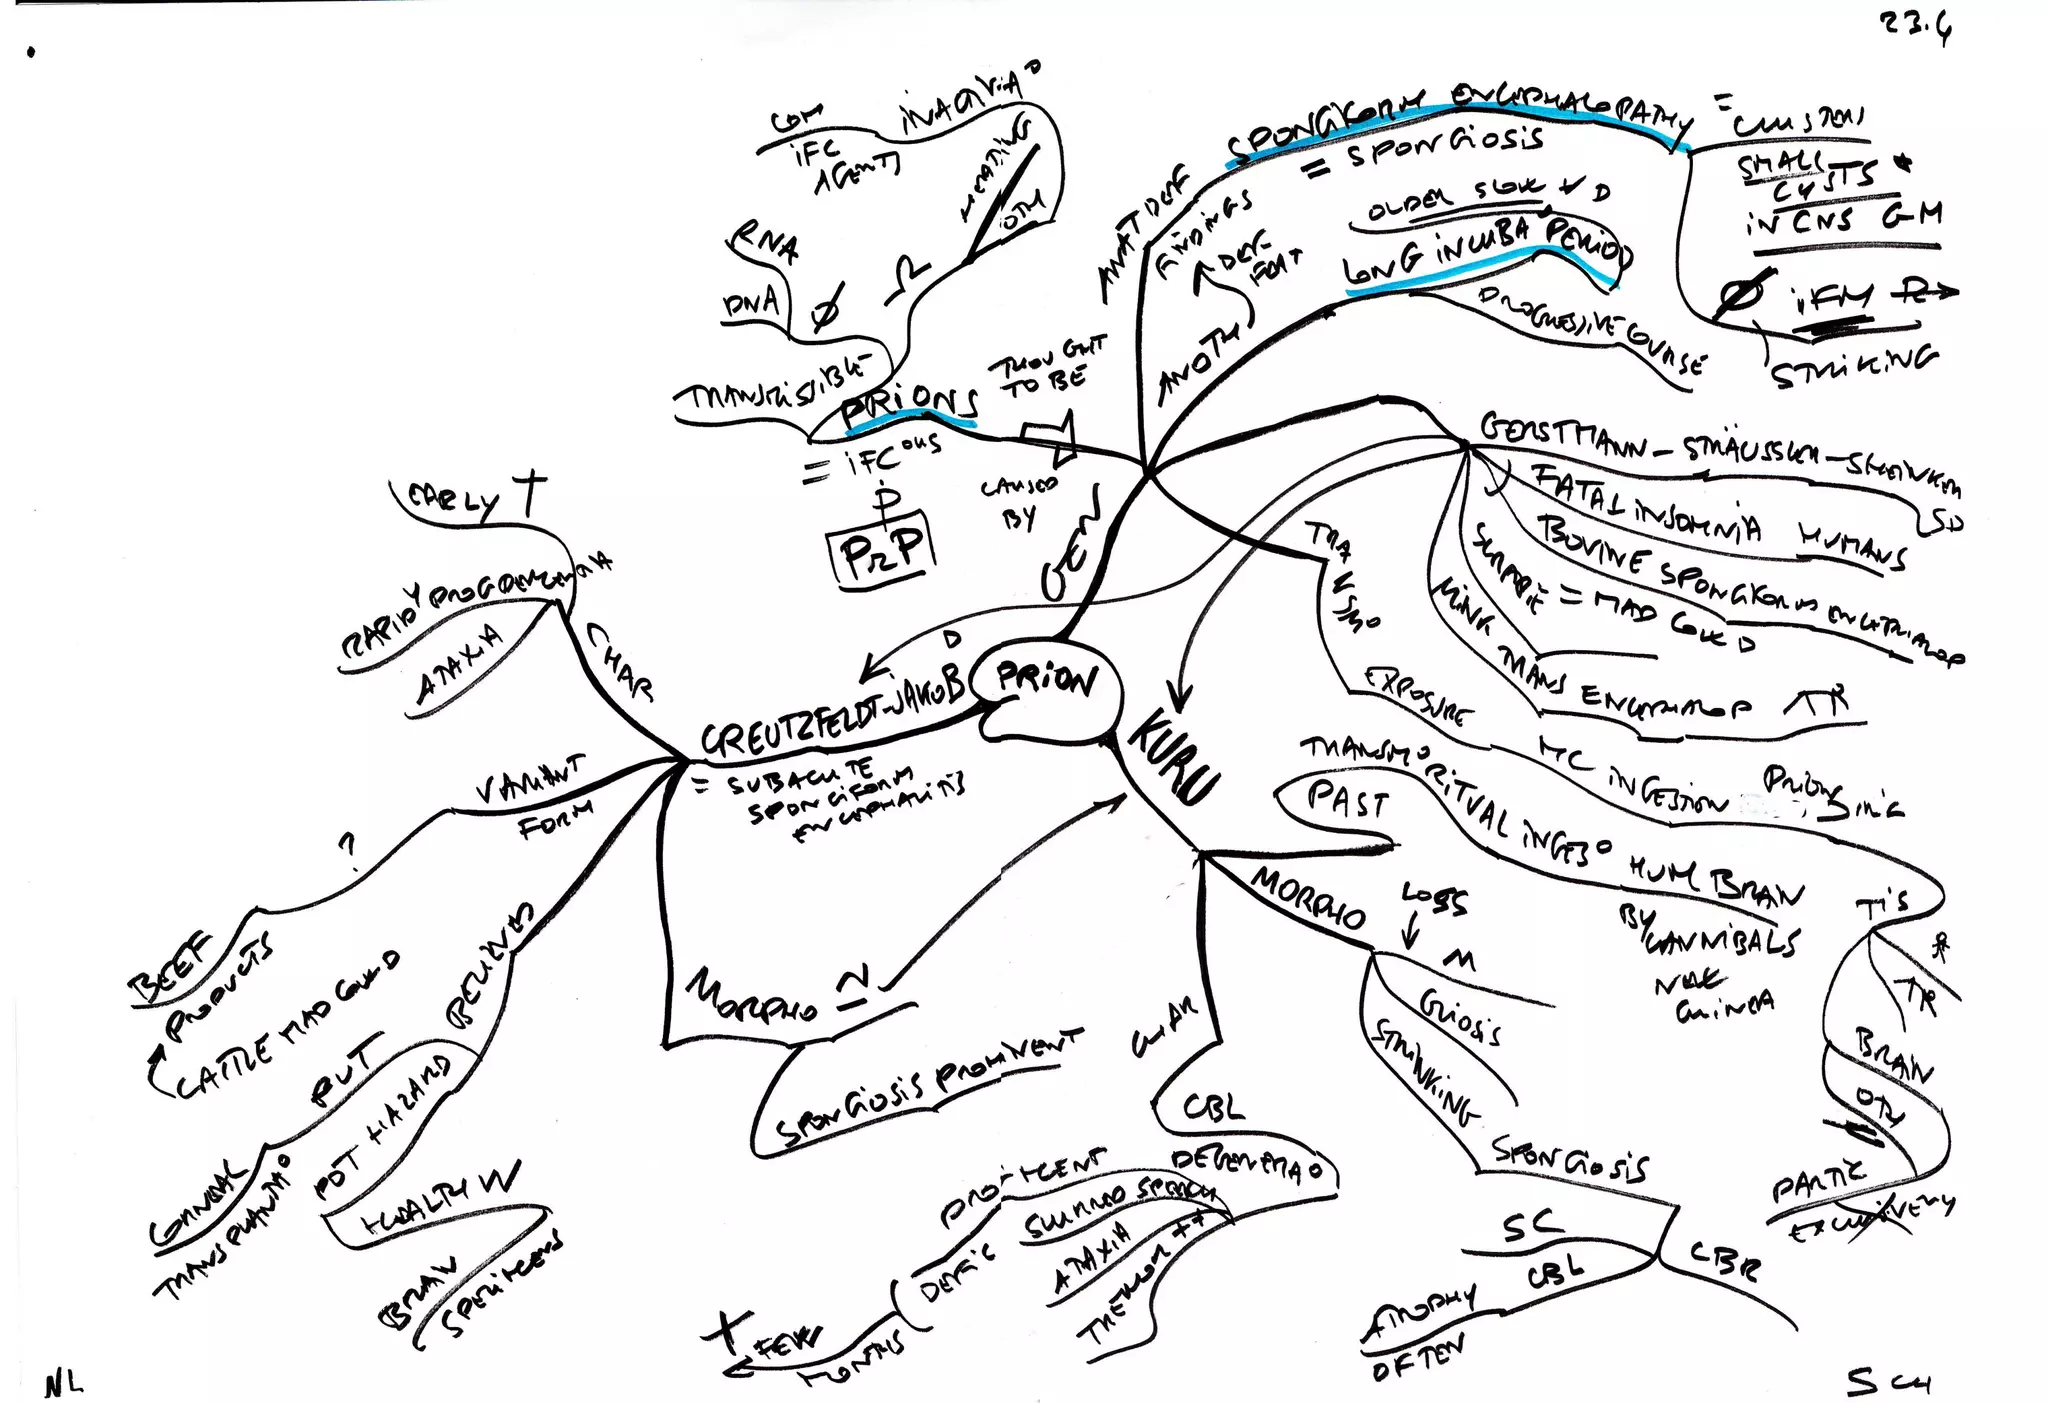 23.4
COM
IFC
AGENTS
INACTIVA°
HEATING
OTH
RNA
DNA
Ø
TRANSMISSIBLE
PRIONS
= IFC OUS
P
PrP
THOUGHT
TO BE
CAUSED
BY
GEN
ANAT DEF
FINDINGS
SPONGIFORM ENCEPHALOPATHY
= SPONGIOSIS
=
CLUSTERS
SMALL
CYSTS
IN CNS GM
Ø IFM R→
STRIKING
ANOTH
DEF
FEAT
OLDER SLOW V D
LONG INCUBA° PERIOD
PROGRESSIVE COURSE
GERSTMANN-STRÄUSSLER-SHEINKER
SD
FATAL INSOMNIA HUMANS
BOVINE SPONGIFORM ENCEPHALOP
= MAD COW D
SCRAPIE
MINK TRANS ENCEPHALOP
TRANSM°
EXPOSURE
MC INGESTION PRIONS
TIS
TR
BRAIN
OTH
PARTIC
EXCLUSIVELY
PRION
CREUTZFELDT-JAKOB D
= SUBACUTE
SPONGIFORM
ENCEPHALITIS
CHAR
EARLY †
RAPIDY PROG DEMENTIA
ATAXIA
VARIANT
FORM
?
BEEF
PRODUCTS
CATTLE MAD COW D
BELIEVED
PUT
CORNEAL
TRANSPLANTA°
POT HAZARD
HEALTH W
BRAIN
SPECIMENS
MORPHO ~
SPONGIOSIS PROMINENT
KURU
PAST
TRANSM° RITUAL INGES° HUM BRAIN
BY CANNIBALS
NEW
GUINEA
MORPHO
LOSS
N
GLIOSIS
STRIKING
SPONGIOSIS
SC
CBL
CBR
ATROPHY
OFTEN
CHAR
CBL
DEGENERA°
PROMINENT
DEFIC
SLURRED SPEECH
ATAXIA
TREMOR ++
† FEW
MONTHS
NL
SCH